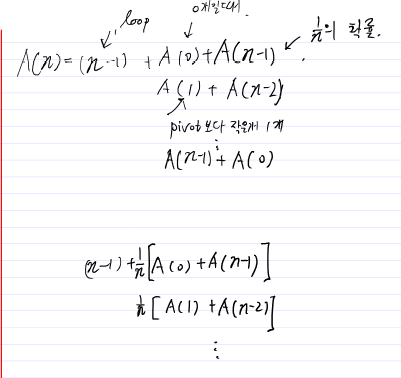 loop
0개일때.
1/n의 확률.
A(n) = (n-1) + A(0) + A(n-1)
A(1) + A(n-2)
pivot보다 작은게 1개
⋮
A(n-1) + A(0)
(n-1) + 1/n [A(0) + A(n-1)]
1/n [A(1) + A(n-2)]
⋮